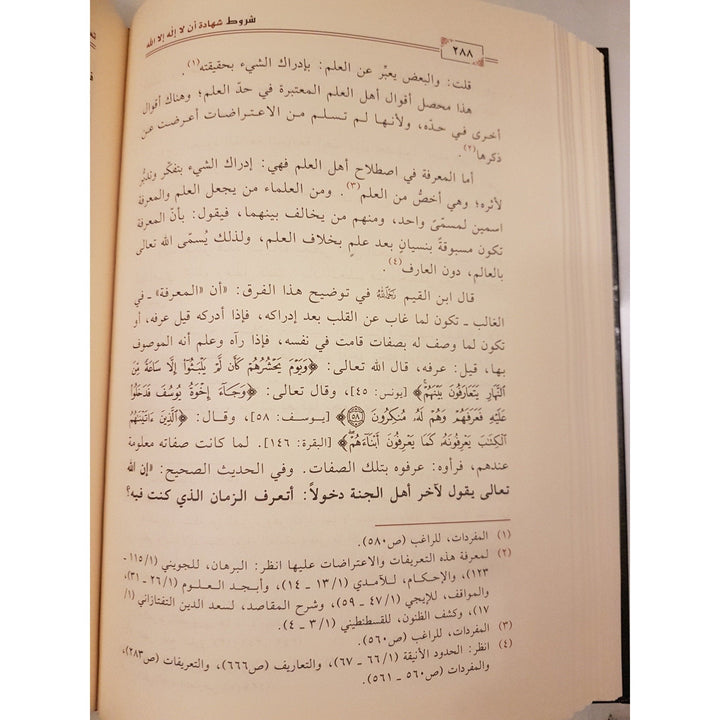 شروط شهادة أن لا إله إلا الله
٢٨٨
قلت: والبعض يعبِّر عن العلم: بإدراك الشيء بحقيقته(١).
هذا محصل أقوال أهل العلم المعتبرة في حدّ العلم؛ وهناك أقوال
أخرى في حدّه، ولأنها لم تسلم من الاعتراضات أعرضت عن
ذكرها(٢).
أما المعرفة في اصطلاح أهل العلم فهي: إدراك الشيء بتفكّر وتدبُّر
لأثره؛ وهي أخصُّ من العلم(٣). ومن العلماء من يجعل العلم والمعرفة
اسمين لمسمّىً واحد، ومنهم من يخالف بينهما، فيقول: بأنّ المعرفة
تكون مسبوقةً بنسيانٍ بعد علمٍ بخلاف العلم، ولذلك يُسمّى الله تعالى
بالعالم، دون العارف(٤).
قال ابن القيم رَحِمَهُ اللهُ في توضيح هذا الفرق: «أن «المعرفة» ـ في
الغالب ـ تكون لما غاب عن القلب بعد إدراكه، فإذا أدركه قيل عرفه، أو
تكون لما وصف له بصفات قامت في نفسه، فإذا رآه وعلم أنه الموصوف
بها، قيل: عرفه، قال الله تعالى: ﴿وَيَوْمَ يَحْشُرُهُمْ كَأَن لَّمْ يَلْبَثُوٓا۟ إِلَّا سَاعَةً مِّنَ
ٱلنَّهَارِ يَتَعَارَفُونَ بَيْنَهُمْ﴾ [يونس: ٤٥]، وقال تعالى: ﴿وَجَآءَ إِخْوَةُ يُوسُفَ فَدَخَلُوا۟
عَلَيْهِ فَعَرَفَهُمْ وَهُمْ لَهُۥ مُنكِرُونَ ٥٨﴾ [يوسف: ٥٨]، وقال: ﴿ٱلَّذِينَ ءَاتَيْنَٰهُمُ
ٱلْكِتَٰبَ يَعْرِفُونَهُۥ كَمَا يَعْرِفُونَ أَبْنَآءَهُمْ﴾ [البقرة: ١٤٦]. لما كانت صفاته معلومة
عندهم، فرأوه: عرفوه بتلك الصفات. وفي الحديث الصحيح: «إن الله
تعالى يقول لآخر أهل الجنة دخولاً: أتعرف الزمان الذي كنت فيه؟
(١) المفردات، للراغب (ص٥٨٠).
(٢) لمعرفة هذه التعريفات والاعتراضات عليها انظر: البرهان، للجويني (١/ ١١٥ ـ
١٢٣)، والإحكام، للآمدي (١/ ١٣ ـ ١٤)، وأبجد العلوم (١/ ٢٦ ـ ٣١)،
والمواقف، للإيجي (١/ ٤٧ ـ ٥٩)، وشرح المقاصد، لسعد الدين التفتازاني (١/
١٧)، وكشف الظنون، للقسطنطيني (١/ ٣ ـ ٤).
(٣) المفردات، للراغب (ص٥٦٠).
(٤) انظر: الحدود الأنيقة (١/ ٦٦ ـ ٦٧)، والتعاريف (ص٦٦٦)، والتعريفات (ص٢٨٣)،
والمفردات (ص٥٦٠ ـ ٥٦١).